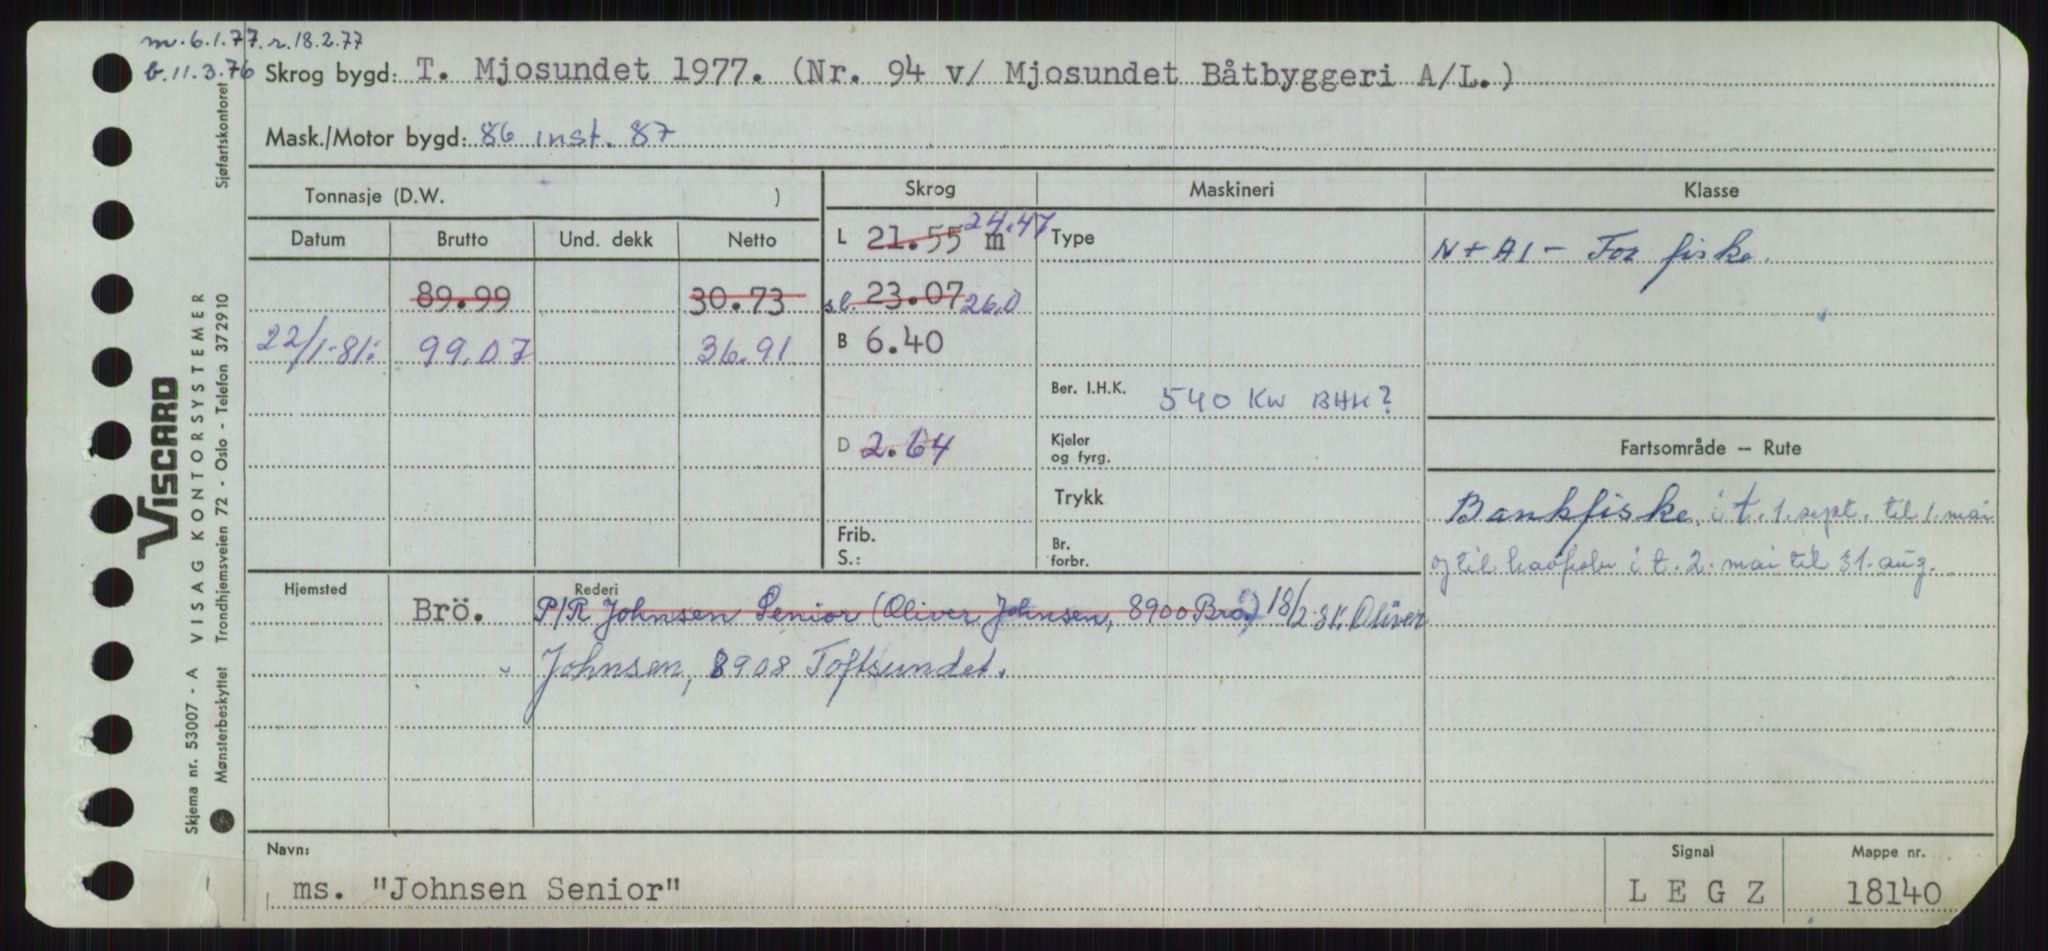 m. 6.1.77. r. 18.2.77
b. 11.3.76 Skrog bygd: T. Mjosundet 1977. (Nr. 94 v/ Mjosundet Båtbyggeri A/L.)
Mask./Motor bygd: 86 inst. 87
Tonnasje (D.W. ) Skrog Maskineri Klasse
Datum Brutto Und. dekk Netto L 21.55 m 24.47 Type N + A1 - For fiske.
89.99 30.73 s.l. 23.07 26.0
22/1-81: 99.07 36.91 B 6.40
Ber. I.H.K. 540 KW BHK?
D 2.64 Kjeler og fyrg. Fartsområde – Rute
Trykk Bankfiske i t. 1. sept. til 1. mai
Frib. S.: Br. forbr. og til havfiske i t. 2. mai til 31. aug.
Hjemsted Rederi
Brö. P/R Johnsen Senior (Oliver Johnsen, 8900 Brö.) 18/2-81: Oliver
" Johnsen, 8908 Toftsundet.
Navn: Signal Mappe nr.
ms. "Johnsen Senior" L E G Z 18140
VISCARD
Skjema nr. 53007 - A VISAG KONTORSYSTEMER
Mønsterbeskyttet Trondhjemsveien 72 - Oslo - Telefon 372910 Sjøfartskontoret